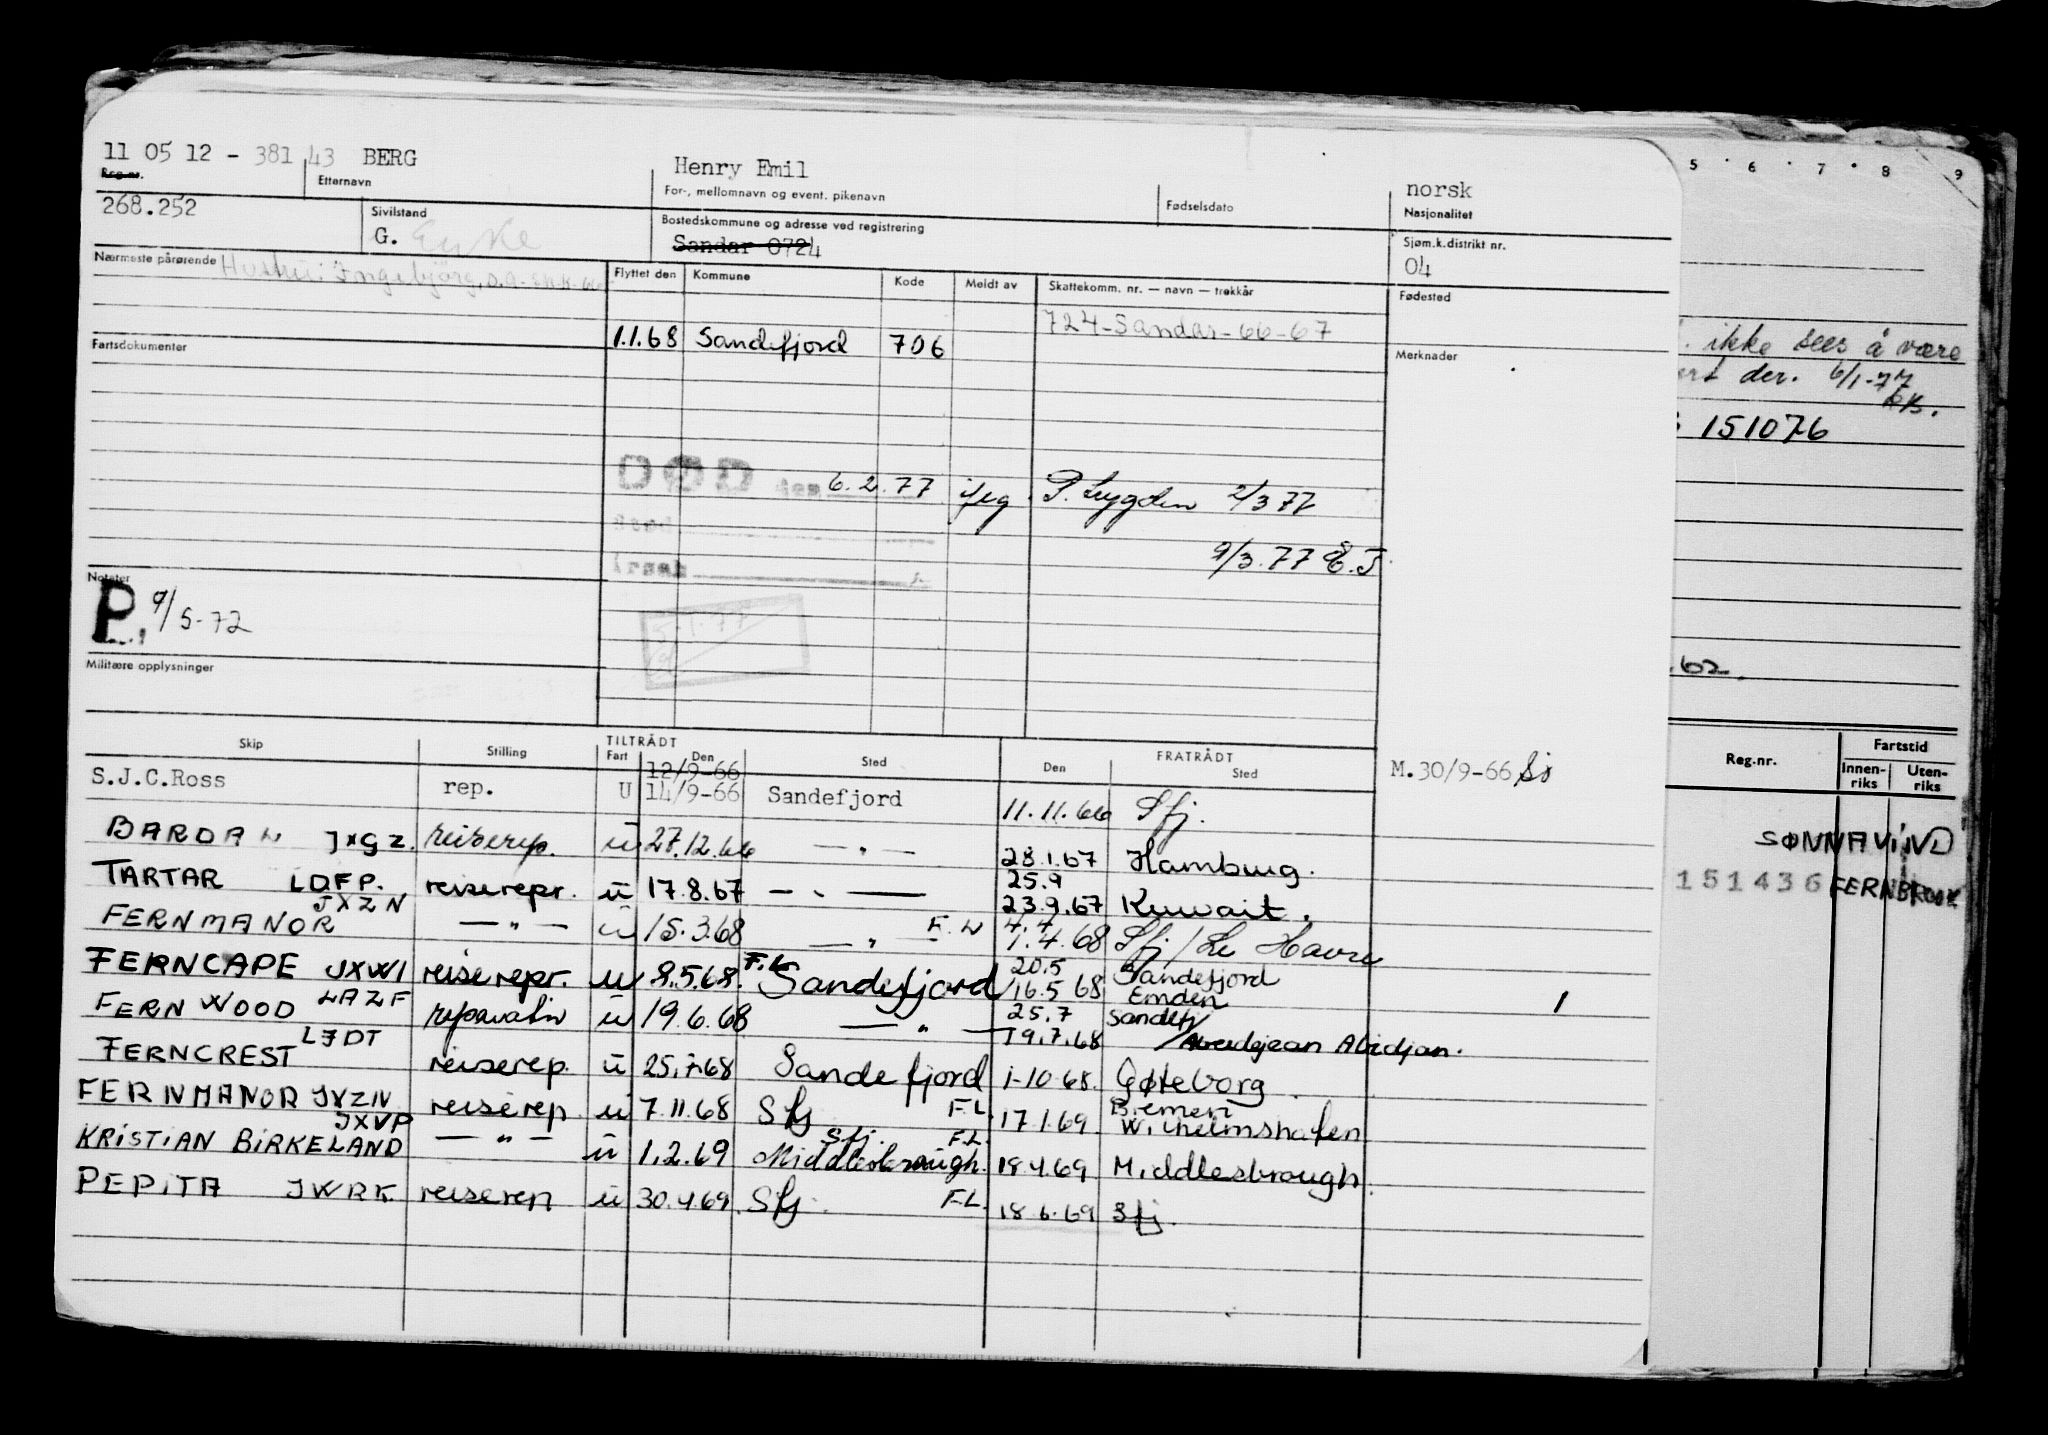 11 05 12 - 381 43 BERG Henry Emil norsk
Reg.nr. Etternavn For-, mellomnavn og event. pikenavn Fødselsdato Nasjonalitet
268.252 Sivilstand Bostedskommune og adresse ved registrering Sjøm.k.distrikt nr.
G. Enke Sandar 0724 04
Nærmeste pårørende Hustru: Ingebjørg, s.a. Flyttet den Kommune Kode Meldt av Skattekomm. nr. — navn — trekkår Fødested
724-Sandar-66-67
Fartsdokumenter 1.1.68 Sandefjord 706 Merknader
DØD den 6.2.77 P. Lygden 2/3 77
Sted
Årsak 9/3.77 E.J.
Notater
P. 9/5-72
5.1.77
Militære opplysninger
Skip Stilling TILTRÅDT Fart Den Sted FRATRÅDT Den Sted
12/9-66
S.J.C.Ross rep. U 14/9-66 Sandefjord 11.11.66 Sfj. M.30/9-66
BARDAL JXGZ. reiserep. u 27.12.66 — " — 28.1.67 Hamburg.
25.9
TARTAR LDFP. reiserepr. u 17.8.67 — " — 23.9.67 Kuwait.
JXZN 4.4
FERNMANOR — " — u 15.3.68 — " — 1.4.68 Sfj / Le Havre
F.L. 20.5 Sandefjord
FERNCAPE JXWI reiserepr. u 8.5.68. Sandefjord 16.5 68 Emden 1
LAZF 25.7 Sandefj
FERNWOOD reparatør u 19.6.68 — " — 19.7.68 / Abidjan.
LJDT
FERNCREST reiserep. u 25.7.68 Sandefjord 1-10 68. Gøteborg
FERNMANOR JXZN reiserep u 7.11.68 Sfj F.L. 17.1.69 Bremen
Wilhelmshafen
JXVP Sfj. F.L.
KRISTIAN BIRKELAND — " — u 1.2.69 Middlesbrough. 18.4.69 Middlesbrough.
PEPITA JWRK reiserep u 30.4.69. Sfj. F.L. 18.6.69 Sfj.
5 6 7 8 9
ikke sees å være
der. 6/1-77
151076
.62.
Reg.nr. Fartstid
Innen-riks Uten-riks
SØNNAVIND
151436 FERNBROOK